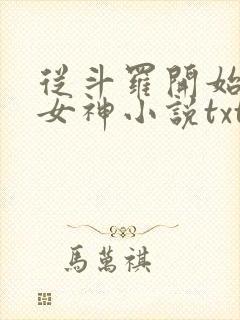 從斗羅開始
女神小説txt
馬萬祺